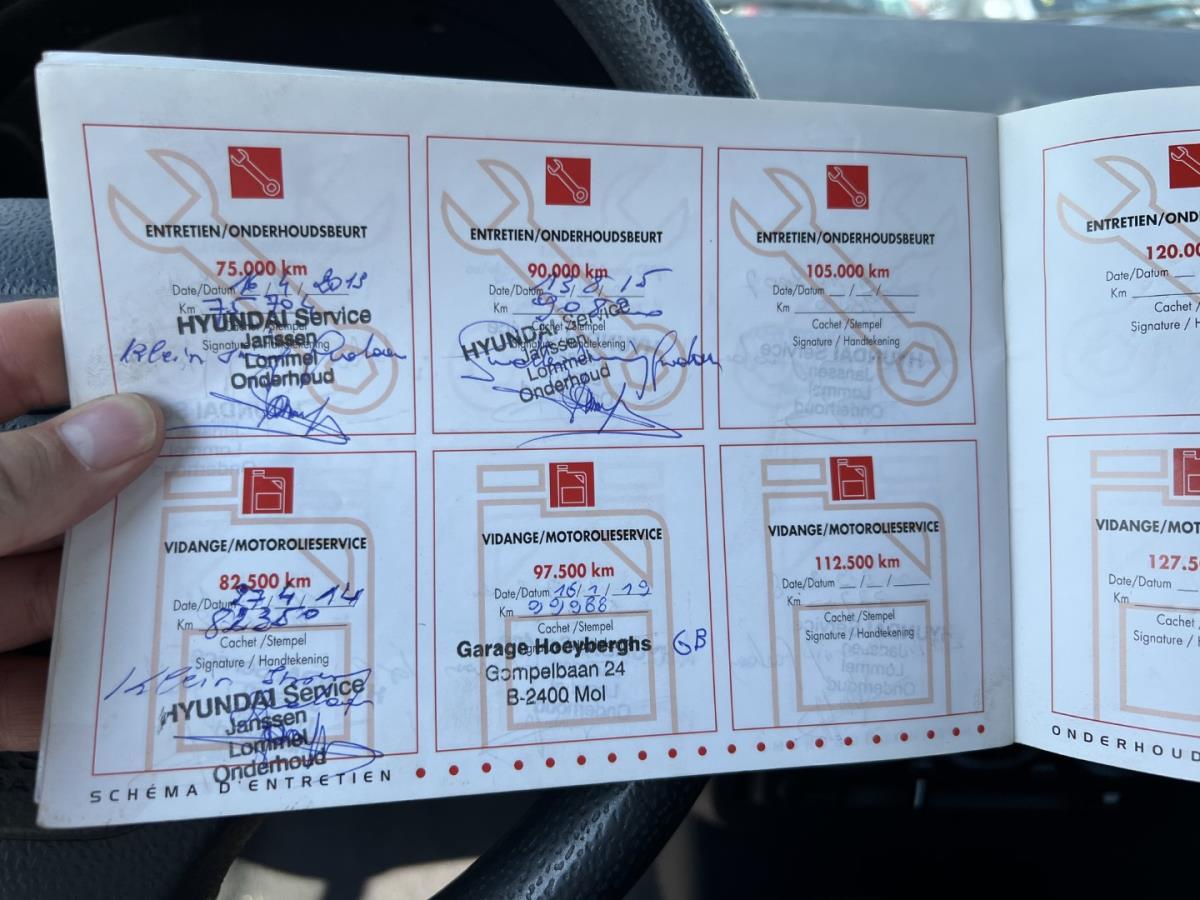 ENTRETIEN/ONDERHOUDSBEURT
75.000 km
Date/Datum 16/4/2013
Km
HYUNDAI Service
Janssen
Signature/Handtekening
Klein
Lommel
Onderhoud
ENTRETIEN/ONDERHOUDSBEURT
90.000 km
Date/Datum 13/8/15
Km
Cachet /Stempel
HYUNDAI Service
Janssen
Lommel
Onderhoud
ENTRETIEN/ONDERHOUDSBEURT
105.000 km
Date/Datum __/__/____
Km
Cachet /Stempel
Signature / Handtekening
ENTRETIEN/OND
120.00
Date/Datum
Km
Cachet /
Signature / H
VIDANGE/MOTOROLIESERVICE
82.500 km
Date/Datum 27/4/14
Km 82350
Cachet / Stempel
Signature / Handtekening
Klein
HYUNDAI Service
Janssen
Lommel
Onderhoud
VIDANGE/MOTOROLIESERVICE
97.500 km
Date/Datum 16/1/19
Km 99988
Cachet / Stempel
Garage Hoeyberghs GB
Gompelbaan 24
B-2400 Mol
VIDANGE/MOTOROLIESERVICE
112.500 km
Date/Datum __/__/____
Km
Cachet/Stempel
Signature / Handtekening
VIDANGE/MOTOR
127.5
Date/Datum
Km
Cachet
Signature / H
SCHÉMA D'ENTRETIEN
ONDERHOUD